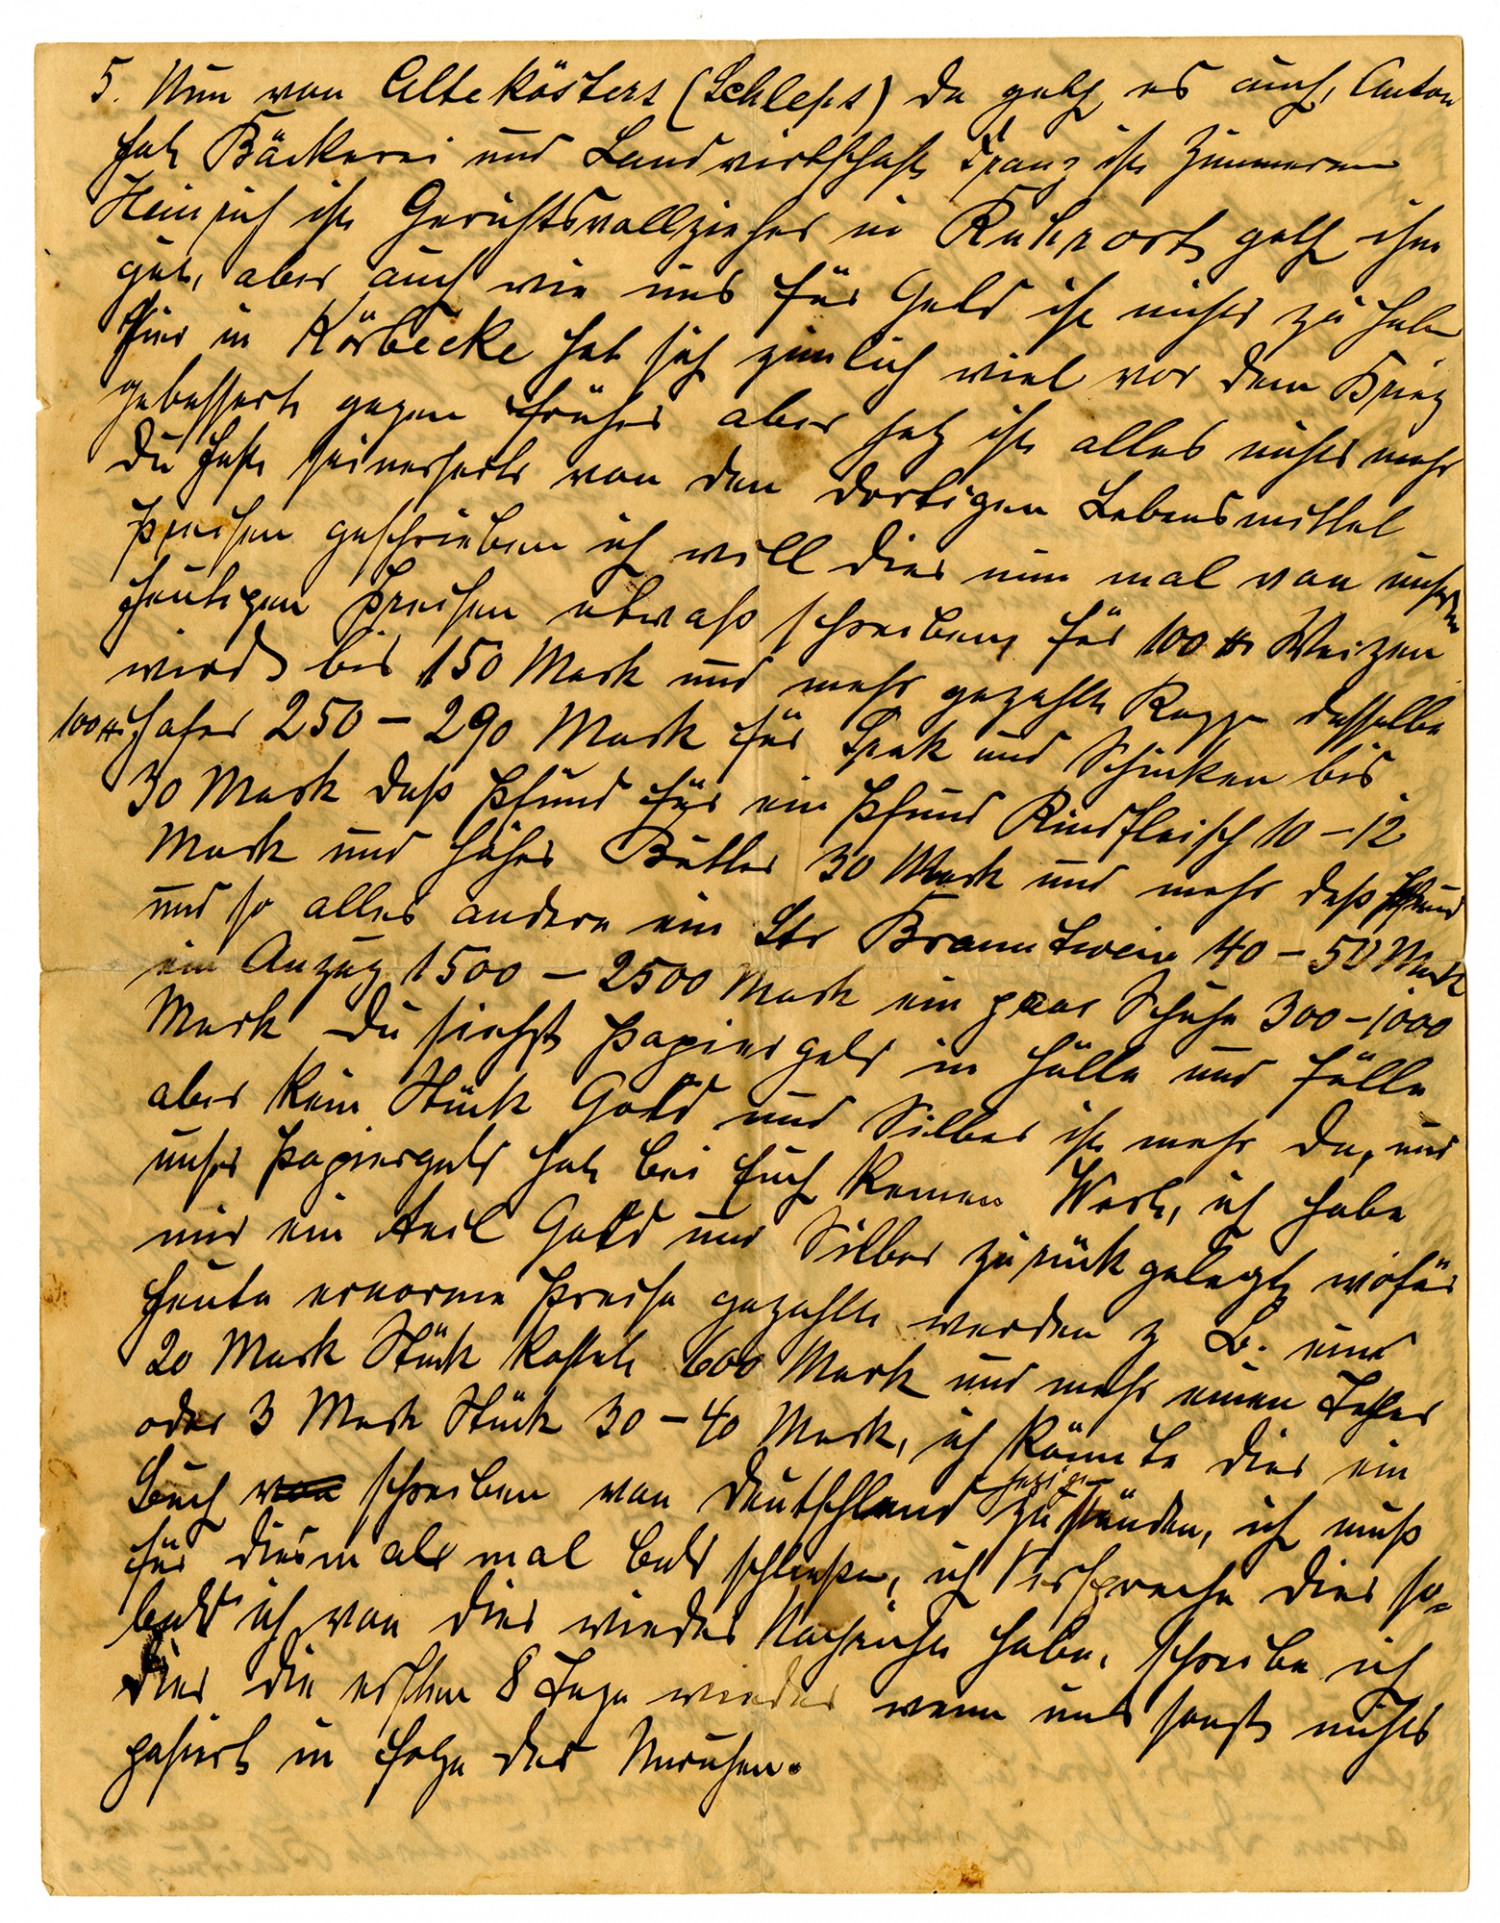 5. Nun von Altekösters (Schleps) da geht es auch, Anton
hat Bäckerei und Landwirtschaft Franz ist Zimmerm
Heinrich ist Gerichtsvollzieher in Ruhrort geht ihm
gut, aber auch wie uns für Geld ist nichts zu haben
hier in Körbecke hat sich zimlich viel vor dem Krieg
gebessert gegen früher aber jetz ist alles nichts mehr
Du hast seinerseits von den dortigen Lebensmittel
Preisen geschrieben ich will dier nun mal von unseren
heutigen Preisen etwaß schreiben, für 100 ℔ Weizen
wird bis 150 Mark und mehr gezahlt Rogge dasselbe
100 ℔ Hafer 250 – 290 Mark für Speck und Schinken bis
30 Mark daß Pfund für ein Pfund Rindfleisch 10 – 12
Mark und höher Butter 30 Mark und mehr daß Pfund
und so alles andere ein Ltr Branntwein 40 – 50 Mark
ein Anzug 1500 – 2500 Mark ein paar Schuhe 300 – 1000
Mark Du siehst Papiergeld in Hülle und Fülle
aber kein Stück Gold und Silber ist mehr da, und
unser Papiergeld hat bei Euch keinen Wert, ich habe
mir ein teil Gold und Silber zurück gelegt wofür
heute enorme Preise gezahlt werden z B. eine
20 Mark Stück kostet 600 Mark und mehr einen Tahler
oder 3 Mark Stück 30 – 40 Mark, ich könnte dier ein
Buch von schreiben von Deutschland jezige Zuständen, ich muß
für diesmals mal bald schließen, ich Verspreche dier so-
bald ich von dier wieder Nachricht habe, schreibe ich
dier die ersten 8 Tage wieder wenn uns sonst nichts
pasiert in folge der Unruhen.